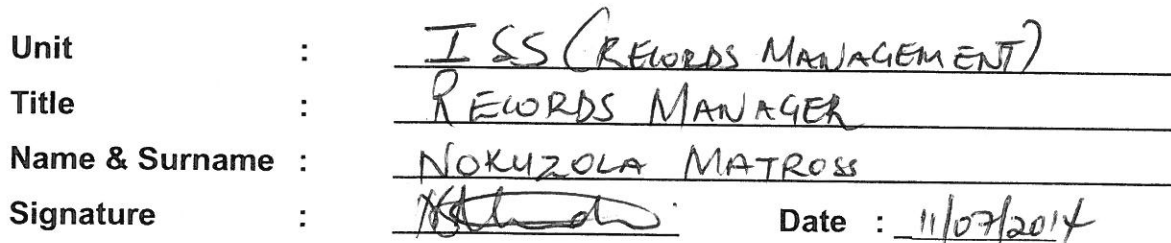 Unit : ISS (RECORDS MANAGEMENT)
Title : RECORDS MANAGER
Name & Surname : NOKUZOLA MATROSS
Signature : Date : 11/07/2014